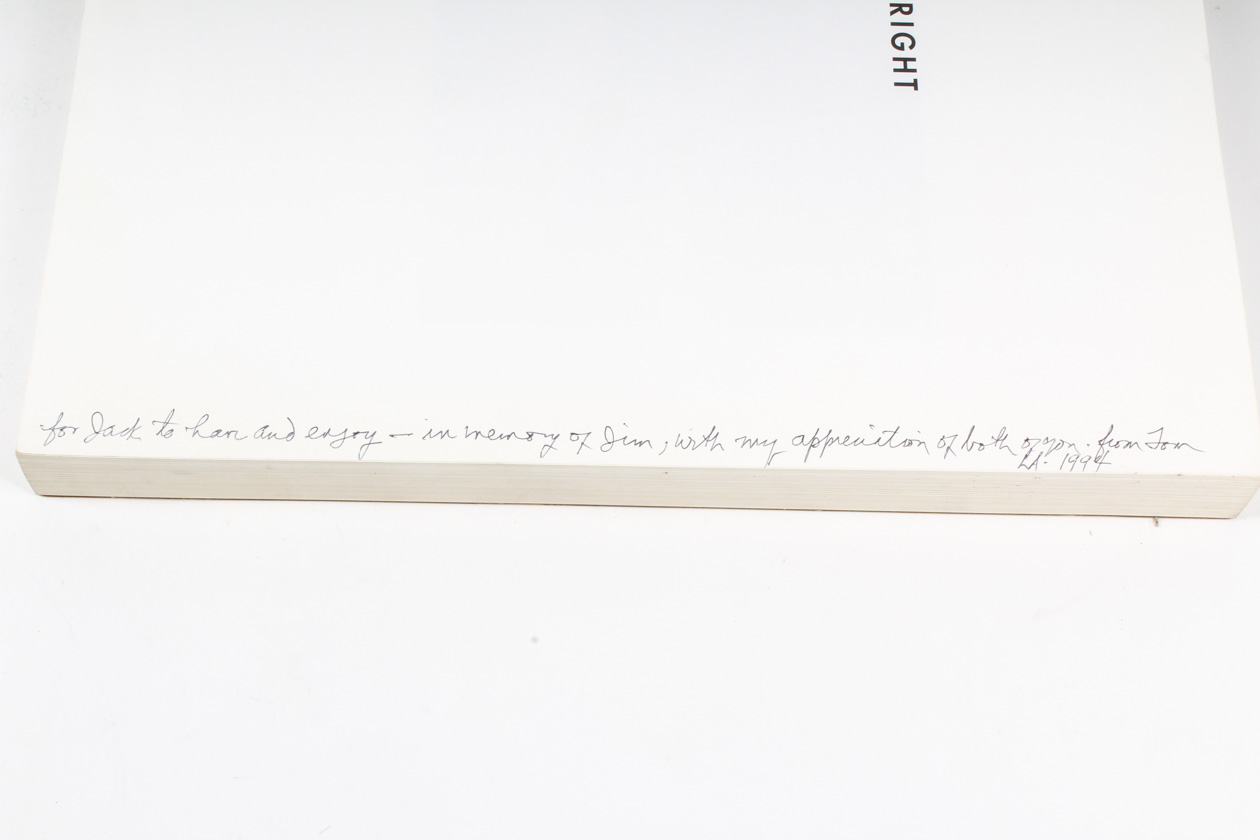 RIGHT
for Jack to have and enjoy — in memory of Jim, with my appreciation of both of you. from Tom
LA. 1994